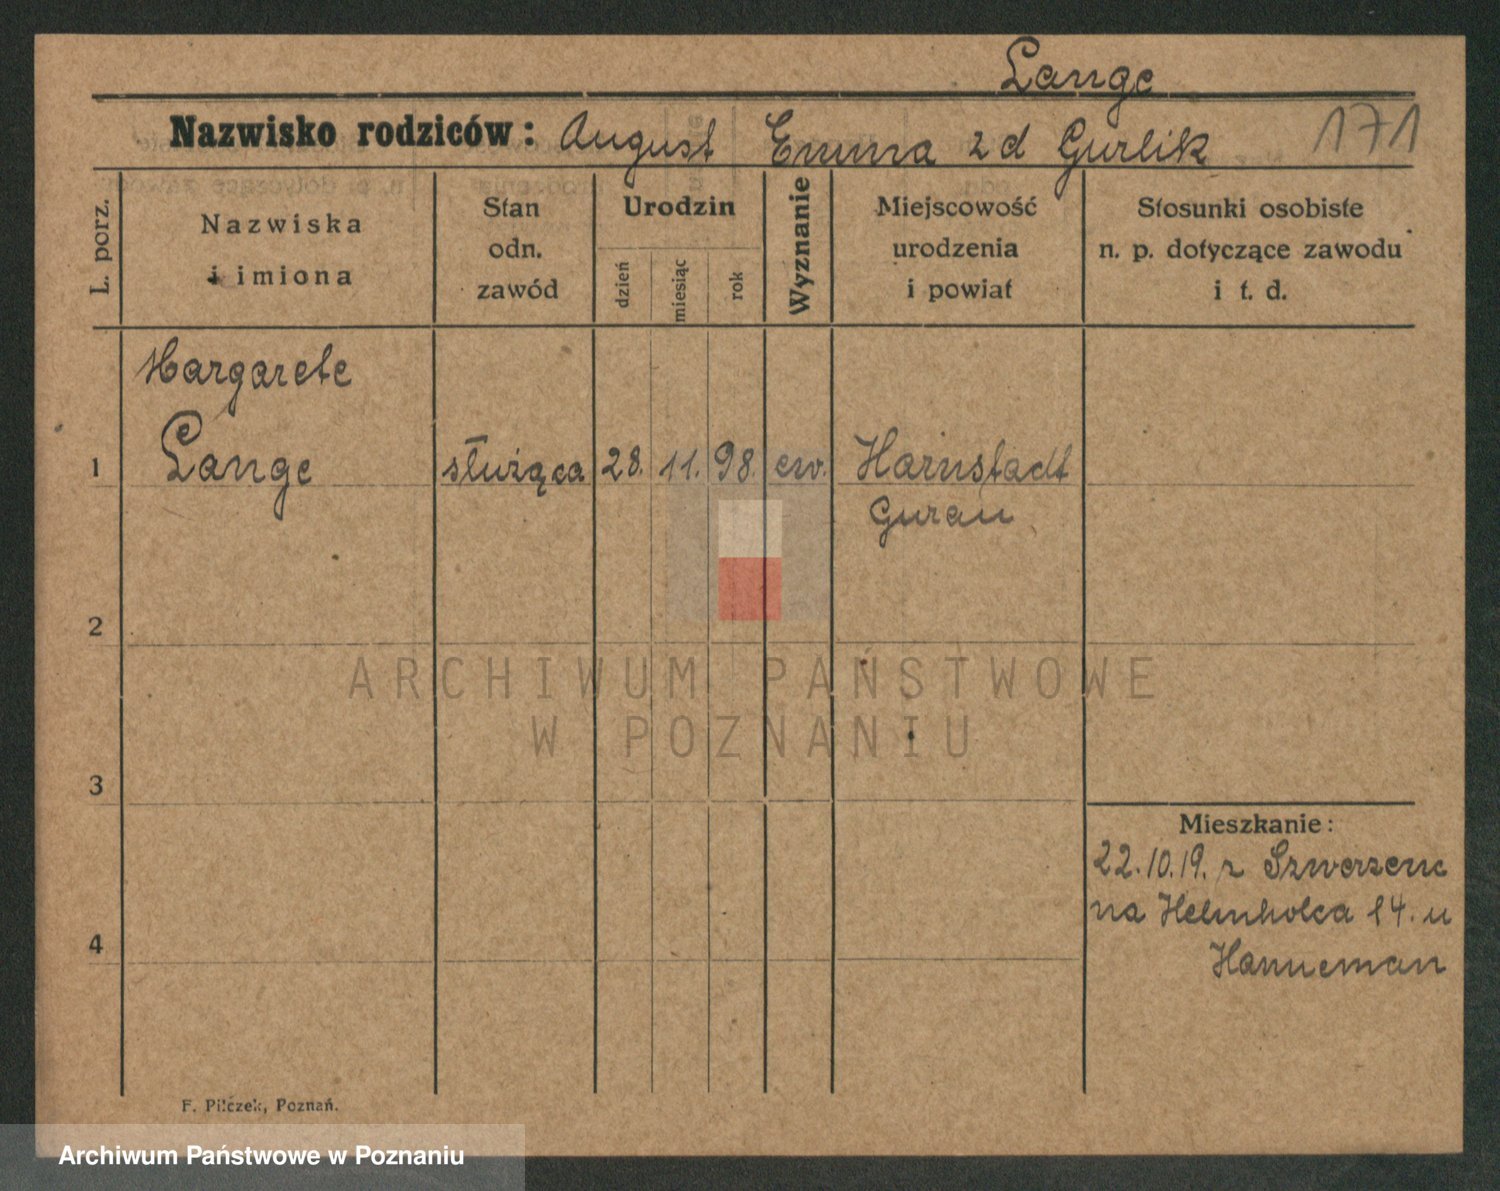 Lange
Nazwisko rodziców: August Emma zd Gurlik 171
L. porz.
Nazwiska
i imiona
Stan
odn.
zawód
Urodzin
dzień
miesiąc
rok
Wyznanie
Miejscowość
urodzenia
i powiat
Stosunki osobiste
n. p. dotyczące zawodu
i t. d.
Margarete
1 Lange służąca 28. 11. 98. ew. Harnstadt
Gurau
2
ARCHIWUM PAŃSTWOWE
W POZNANIU
3
Mieszkanie:
22.10.19. z
na Helmholca 14. u
4
Hanneman
F. Pilczek, Poznań.
Archiwum Państwowe w Poznaniu